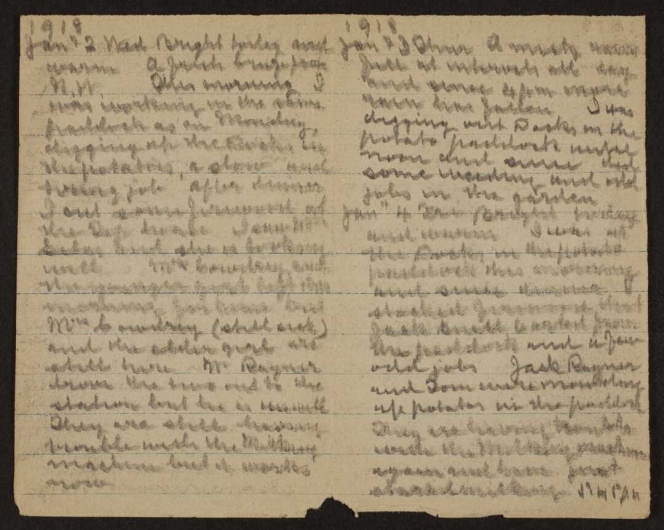 1918
Jany 2 Wed Bright today and
warm A fresh breeze from
N.W. This morning I
was working in the same
paddock as on Monday,
digging up the Docks in
the potatoes, a slow and
tiring job after dinner
I cut some firewood at
the
and she is looking
well Mr Cowdrey and
the younger girl left this
morning for home but
Mrs Cowdrey (still sick)
and the elder girl are
still here Mr Rayner
drove the two out to the
station but he is unwell
They are still having
trouble with the Milking
machine but it works
now
1918
Jany 3 Thur A misty rain
fell at intervals all day
and since 4 pm more
rain has fallen I was
digging out Docks in the
potato paddock until
noon and since did
some weeding and odd
jobs in the garden
Jany 4 Fri Bright today
and warm I was at
the Docks in the potato
paddock this morning
and since dinner
stacked firewood that
Jack carted from
the paddock and a few
odd jobs Jack Rayner
and Tom were moulding
up potatoes in the paddock
They are having trouble
with the Milking machine
again and have just
5 pm